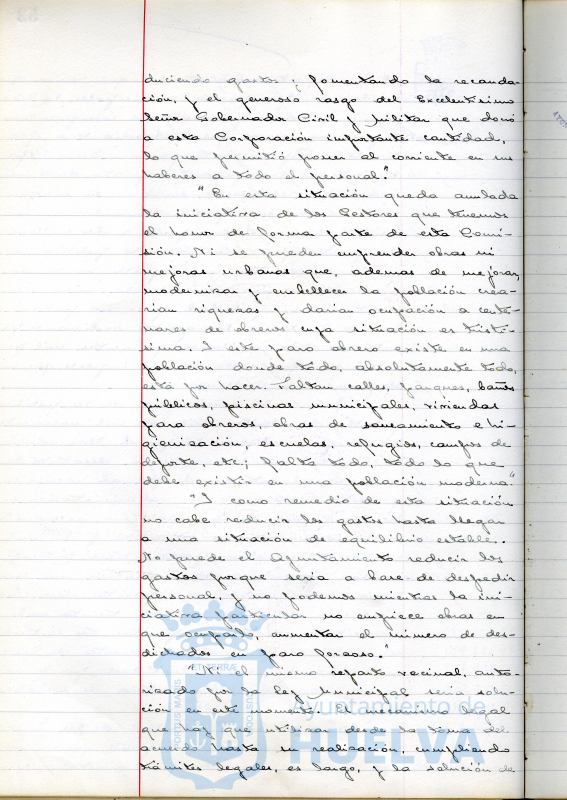 duciendo gastos y fomentando la recauda-
ción, y el generoso rasgo del Excelentísimo
Señor Gobernador Civil y Militar que donó
a esta Corporación importante cantidad,
lo que permitió poner al corriente en sus
haberes a todo el personal."
"En esta situación queda anulada
la iniciativa de los Gestores que tenemos
el honor de formar parte de esta Comi-
sión. Ni se pueden emprender obras ni
mejoras urbanas que, ademas de mejorar,
modernizar y embellecer la población crea-
rian riquezas y darian ocupación a cente-
nares de obreros cuya situación es tristí-
sima. I este paro obrero existe en una
población donde todo, absolutamente todo,
está por hacer. Faltan calles, parques, baños
públicos, piscinas municipales, viviendas
para obreros, obras de saneamiento e hi-
gienización, escuelas, refugios, campos de
deporte, etc; falta todo, todo lo que
debe existir en una población moderna."
"I como remedio de esta situación
no cabe reducir los gastos hasta llegar
a una situación de equilibrio estable.
No puede el Ayuntamiento reducir los
gastos porque seria a base de despedir
personal, y no podemos mientras la ini-
ciativa particular no empiece obras en
que ocuparlo, aumentar el número de des-
dichados en paro forzoso."
"Ni el mismo reparto vecinal, auto-
rizado por la ley Municipal seria solu-
ción en este momento. El mecanismo legal
que hay que utilizar desde la toma del
acuerdo hasta su realización, cumpliendo
trámites legales, es largo, y la solución de
Ayuntamiento de
HUELVA
PORTUS MARIS
ET TERRÆ
CUSTODIA